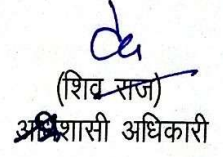 (शिव राज)
अधिशासी अधिकारी